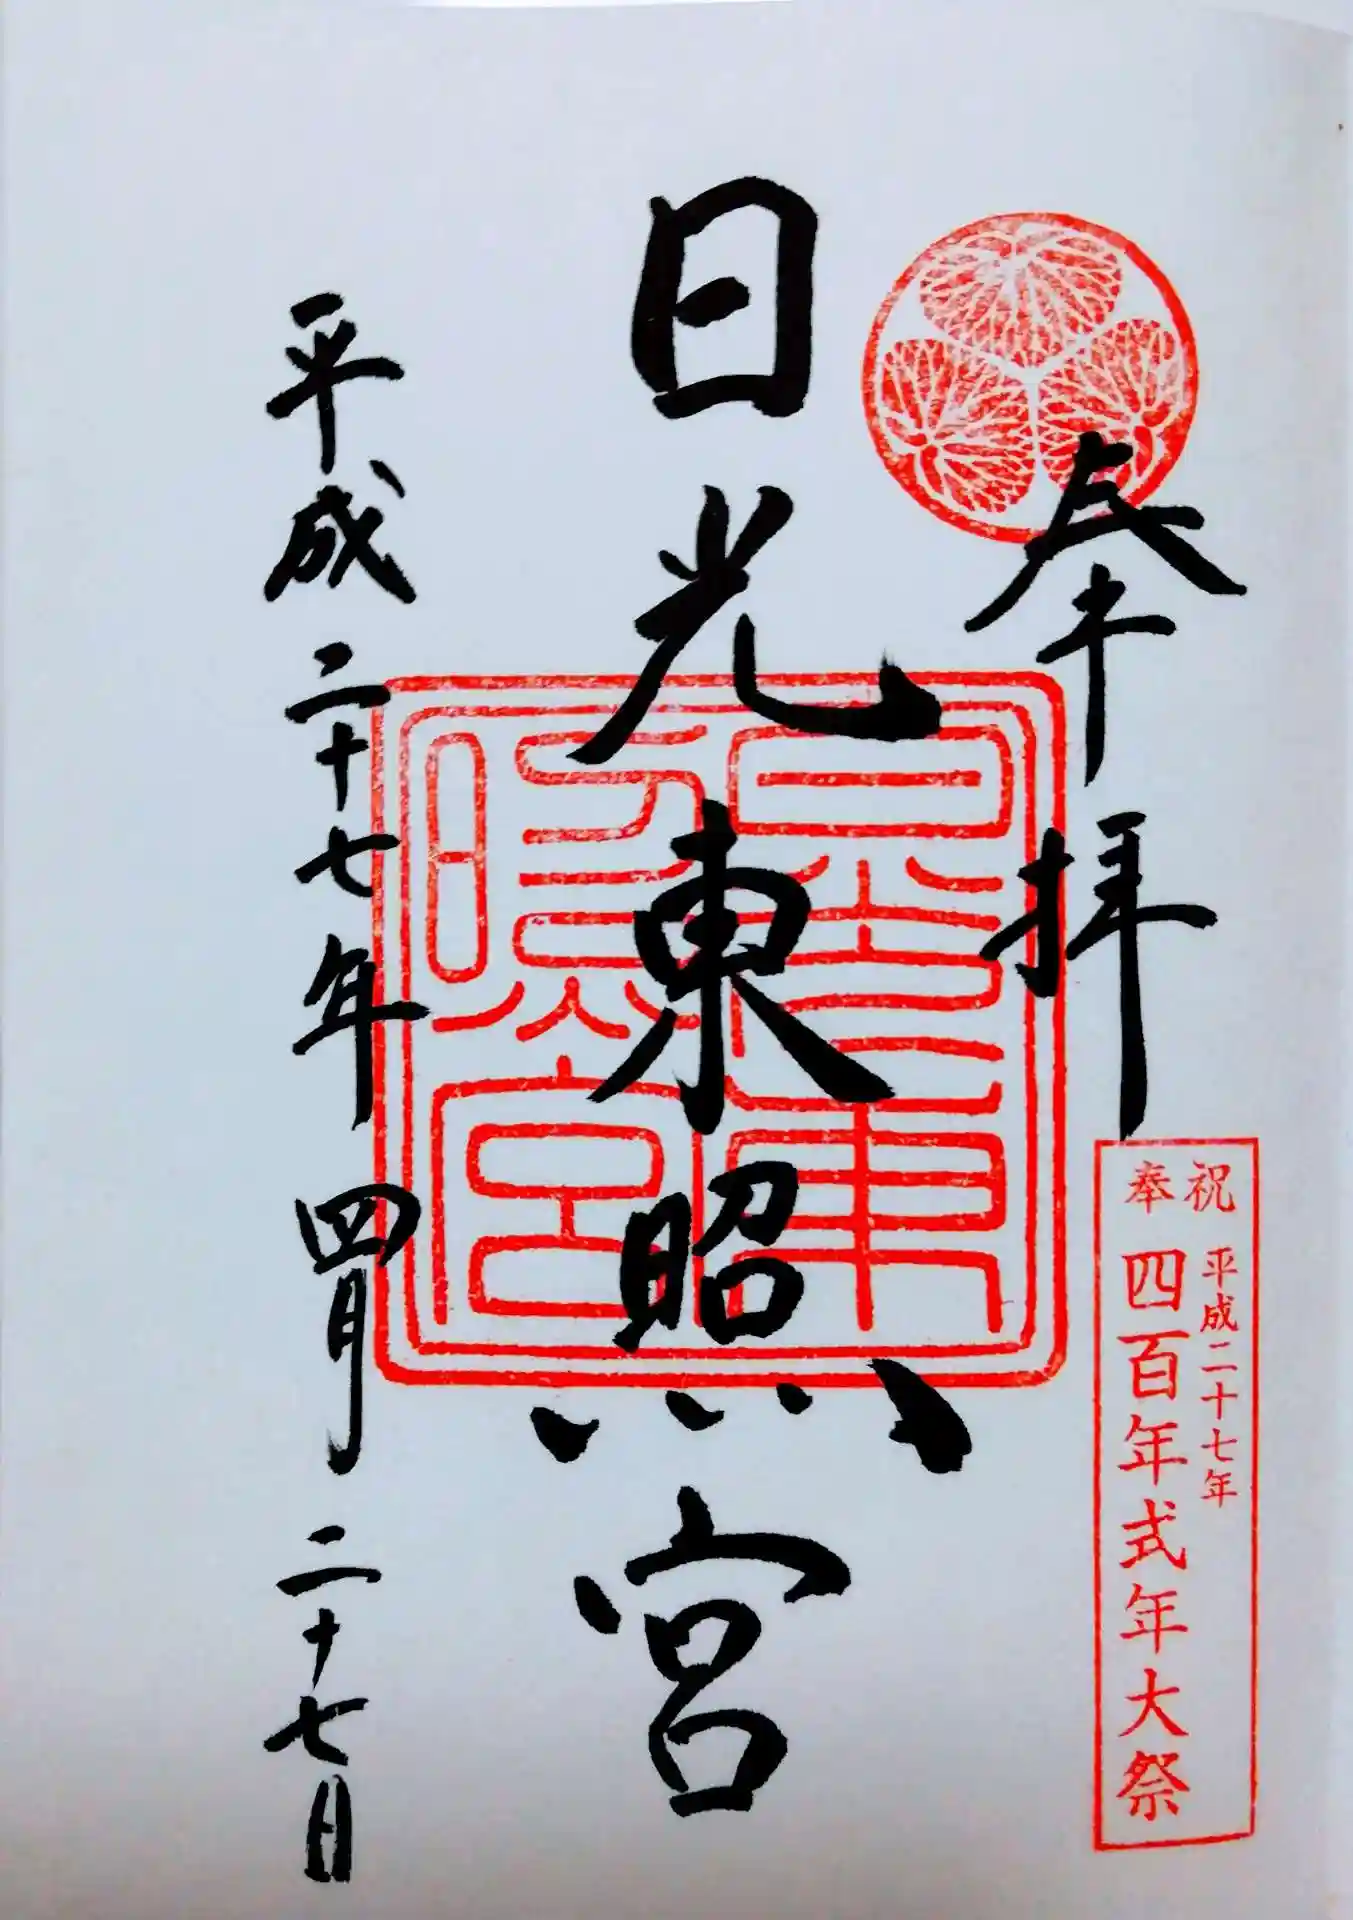 奉拝
祝
奉
平成二十七年
四百年式年大祭
日光東照宮
平成二十七年四月二十七日